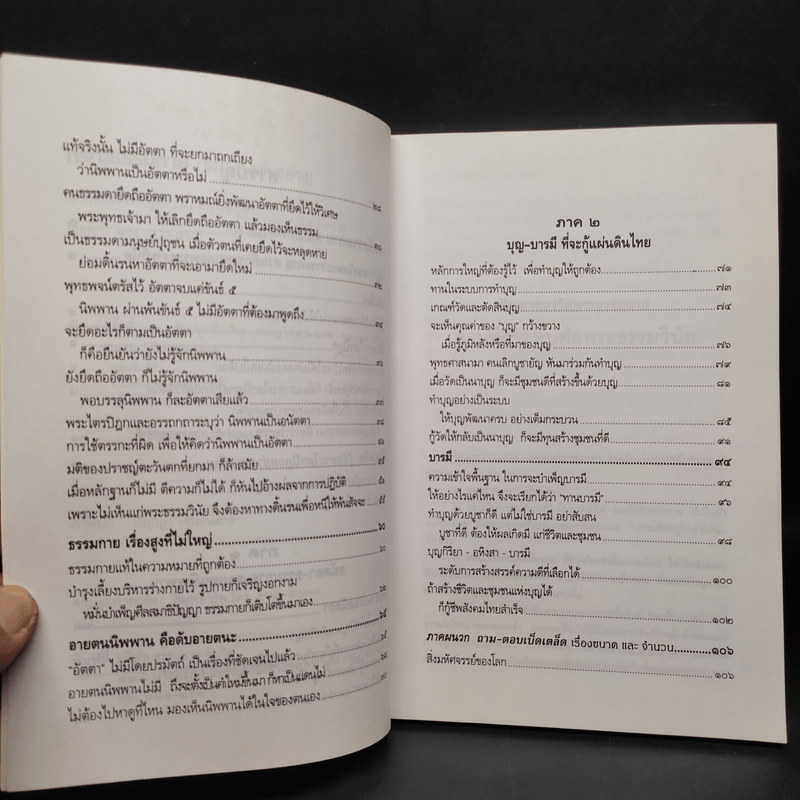 แท้จริงนั้น ไม่มีอัตตา ที่จะยกมาถกเถียง
ว่านิพพานเป็นอัตตาหรือไม่ ๒๘
คนธรรมดายึดถืออัตตา พราหมณ์ยิ่งพัฒนาอัตตาที่ยึดไว้ให้วิเศษ
พระพุทธเจ้ามา ให้เลิกยึดถืออัตตา แล้วมองเห็นธรรม ๓๐
เป็นธรรมดามนุษย์ปุถุชน เมื่อตัวตนที่เคยยึดไว้จะหลุดหาย
ย่อมดิ้นรนหาอัตตาที่จะเอามายึดใหม่ ๓๒
พุทธพจน์ตรัสไว้ อัตตาจบแค่ขันธ์ ๕
นิพพาน ผ่านพ้นขันธ์ ๕ ไม่มีอัตตาที่ต้องมาพูดถึง ๓๔
จะยึดอะไรก็ตามเป็นอัตตา
ก็คือยืนยันว่ายังไม่รู้จักนิพพาน
ยังยึดถืออัตตา ก็ไม่รู้จักนิพพาน
พอบรรลุนิพพาน ก็ละอัตตาเสียแล้ว ๓๗
พระไตรปิฎกและอรรถกถาระบุว่า นิพพานเป็นอนัตตา
การใช้ตรรกะที่ผิด เพื่อให้คิดว่านิพพานเป็นอัตตา
มติของปราชญ์ตะวันตกที่ยกมา ก็ล้าสมัย
เมื่อหลักฐานก็ไม่มี ตีความก็ไม่ได้ ก็หันไปอ้างผลจากการปฏิบัติ
เพราะไม่เห็นแก่พระธรรมวินัย จึงต้องหาทางดิ้นรนเพื่อหนีให้พ้นสัจจะ
ธรรมกาย เรื่องสูงที่ไม่ใหญ่ ๖๐
ธรรมกายแท้ในความหมายที่ถูกต้อง ๖๐
บำรุงเลี้ยงบริหารร่างกายไว้ รูปกายก็เจริญงอกงาม
หมั่นบำเพ็ญศีลสมาธิปัญญา ธรรมกายก็เติบโตขึ้นมาเอง
อายตนนิพพาน คือดับอายตนะ ๖๔
"อัตตา" ไม่มีโดยปรมัตถ์ เป็นเรื่องที่ชัดเจนไปแล้ว ๖๔
อายตนนิพพานไม่มี ถึงจะตั้งเป็นคำใหม่ขึ้นมา ก็หาเป็นแดนไม่
ไม่ต้องไปหาดูที่ไหน มองเห็นนิพพานได้ในใจของตนเอง ๗๐
ภาค ๒
บุญ-บารมี ที่จะกู้แผ่นดินไทย
หลักการใหญ่ที่ต้องรู้ไว้ เพื่อทำบุญให้ถูกต้อง ๗๑
ทานในระบบการทำบุญ ๗๓
เกณฑ์วัดและตัดสินบุญ ๗๔
จะเห็นคุณค่าของ "บุญ" กว้างขวาง
เมื่อรู้ภูมิหลังหรือที่มาของบุญ ๗๖
พุทธศาสนามา คนเลิกบูชายัญ หันมาร่วมกันทำบุญ ๗๙
เมื่อวัดเป็นนาบุญ ก็จะมีชุมชนดีที่สร้างขึ้นด้วยบุญ ๘๑
ทำบุญอย่างเป็นระบบ
ให้บุญพัฒนาครบ อย่างเต็มกระบวน ๘๕
กู้วัดให้กลับเป็นนาบุญ ก็จะมีทุนสร้างชุมชนที่ดี ๙๑
บารมี ๙๔
ความเข้าใจพื้นฐาน ในการจะบำเพ็ญบารมี ๙๔
ให้อย่างไรแค่ไหน จึงจะเรียกได้ว่า "ทานบารมี" ๙๖
ทำบุญด้วยบูชาก็ดี แต่ไม่ใช่บารมี อย่าสับสน
บูชาที่ดี ต้องให้ผลเกิดมี แก่ชีวิตและชุมชน ๙๘
บุญกิริยา - อหิงสา - บารมี
ระดับการสร้างสรรค์ความดีที่เลือกได้ ๑๐๐
ถ้าสร้างชีวิตและชุมชนแห่งบุญได้
ก็กู้ชีพสังคมไทยสำเร็จ ๑๐๒
ภาคผนวก ถาม-ตอบเบ็ดเตล็ด เรื่องขนาด และ จำนวน ๑๐๖
สิ่งมหัศจรรย์ของโลก ๑๐๖